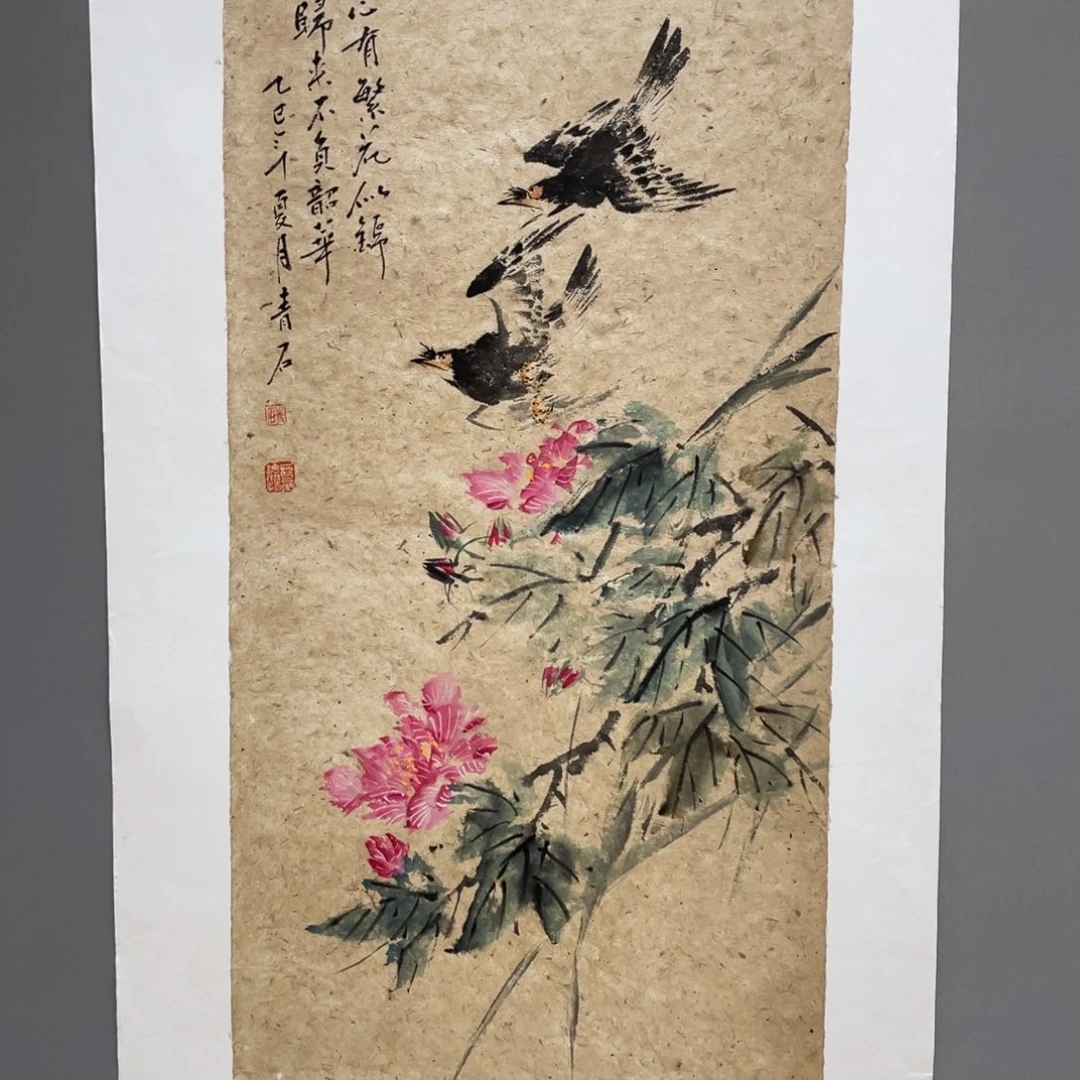 心有繁花似錦
歸来不負韶華
乙巳年夏月青石